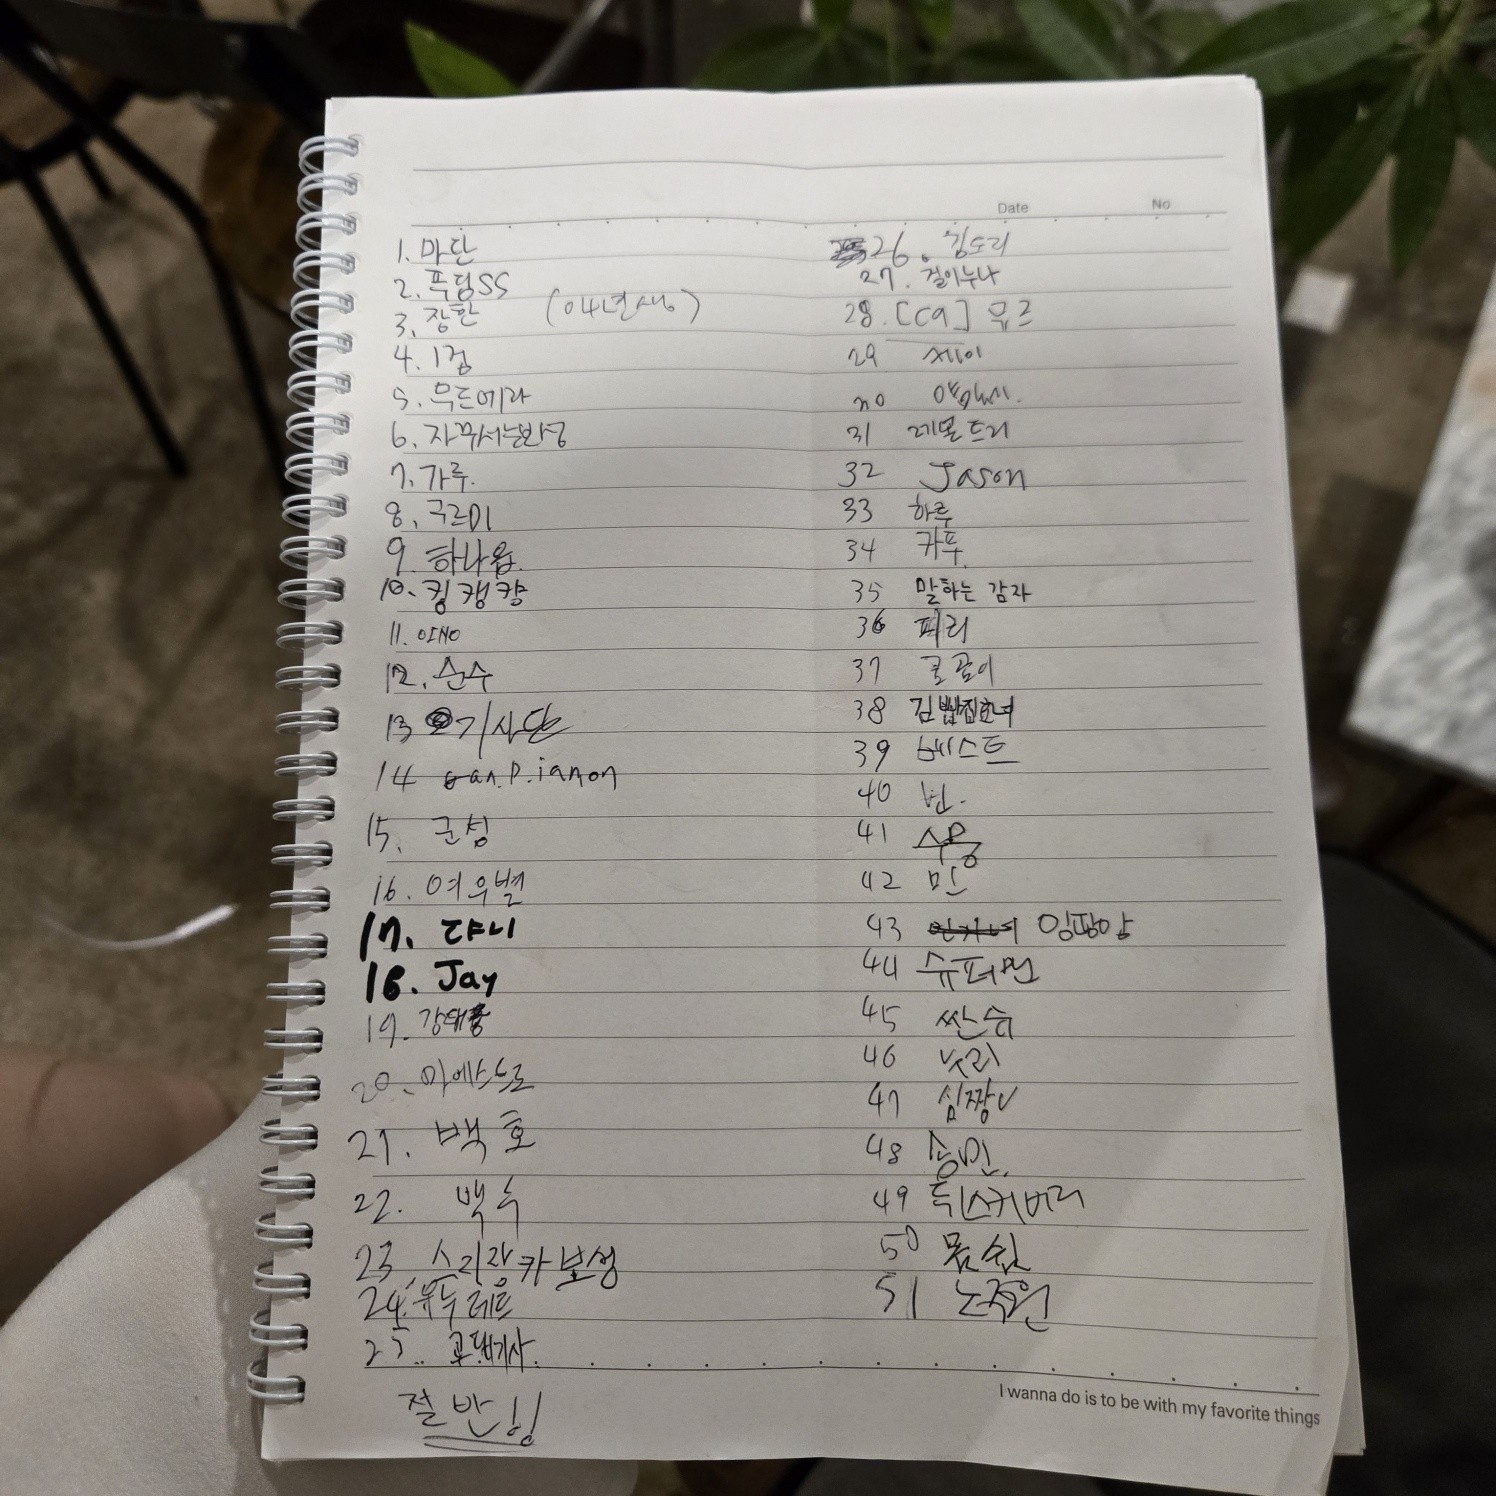 Date No
1. 마단
2. 푸딩SS
3. 장환 (04년생)
4. 1검
5. 우드에라
6. 자꾸서는반성
7. 가루.
8. 구르미
9. 하나욥.
10. 킹캥컁
11.
12. 순수
13 기사단
14 an.P.ianon
15. 군성
16. 여우별
17. 댜니
18. Jay
19.
20. 마에스트로
21. 백호
22. 백수
23. 스리랑카보성
24. 유두레트
25. 교대기사.
절반
26. 김도리
27. 걸이누나
28. [CA] 유르
29 제이
30
31 레몬트리
32 Jason
33 하루
34 카푸.
35 말하는 감자
36 피리
37 글곰이
38
39 베스트
40 빈.
41 수용
42 민
43 임팡망
44 슈퍼먼
45 싼쉬
46
47 심짱V
48 승민.
49 틱스커버리
50 몸쉽
51 노주원
I wanna do is to be with my favorite things